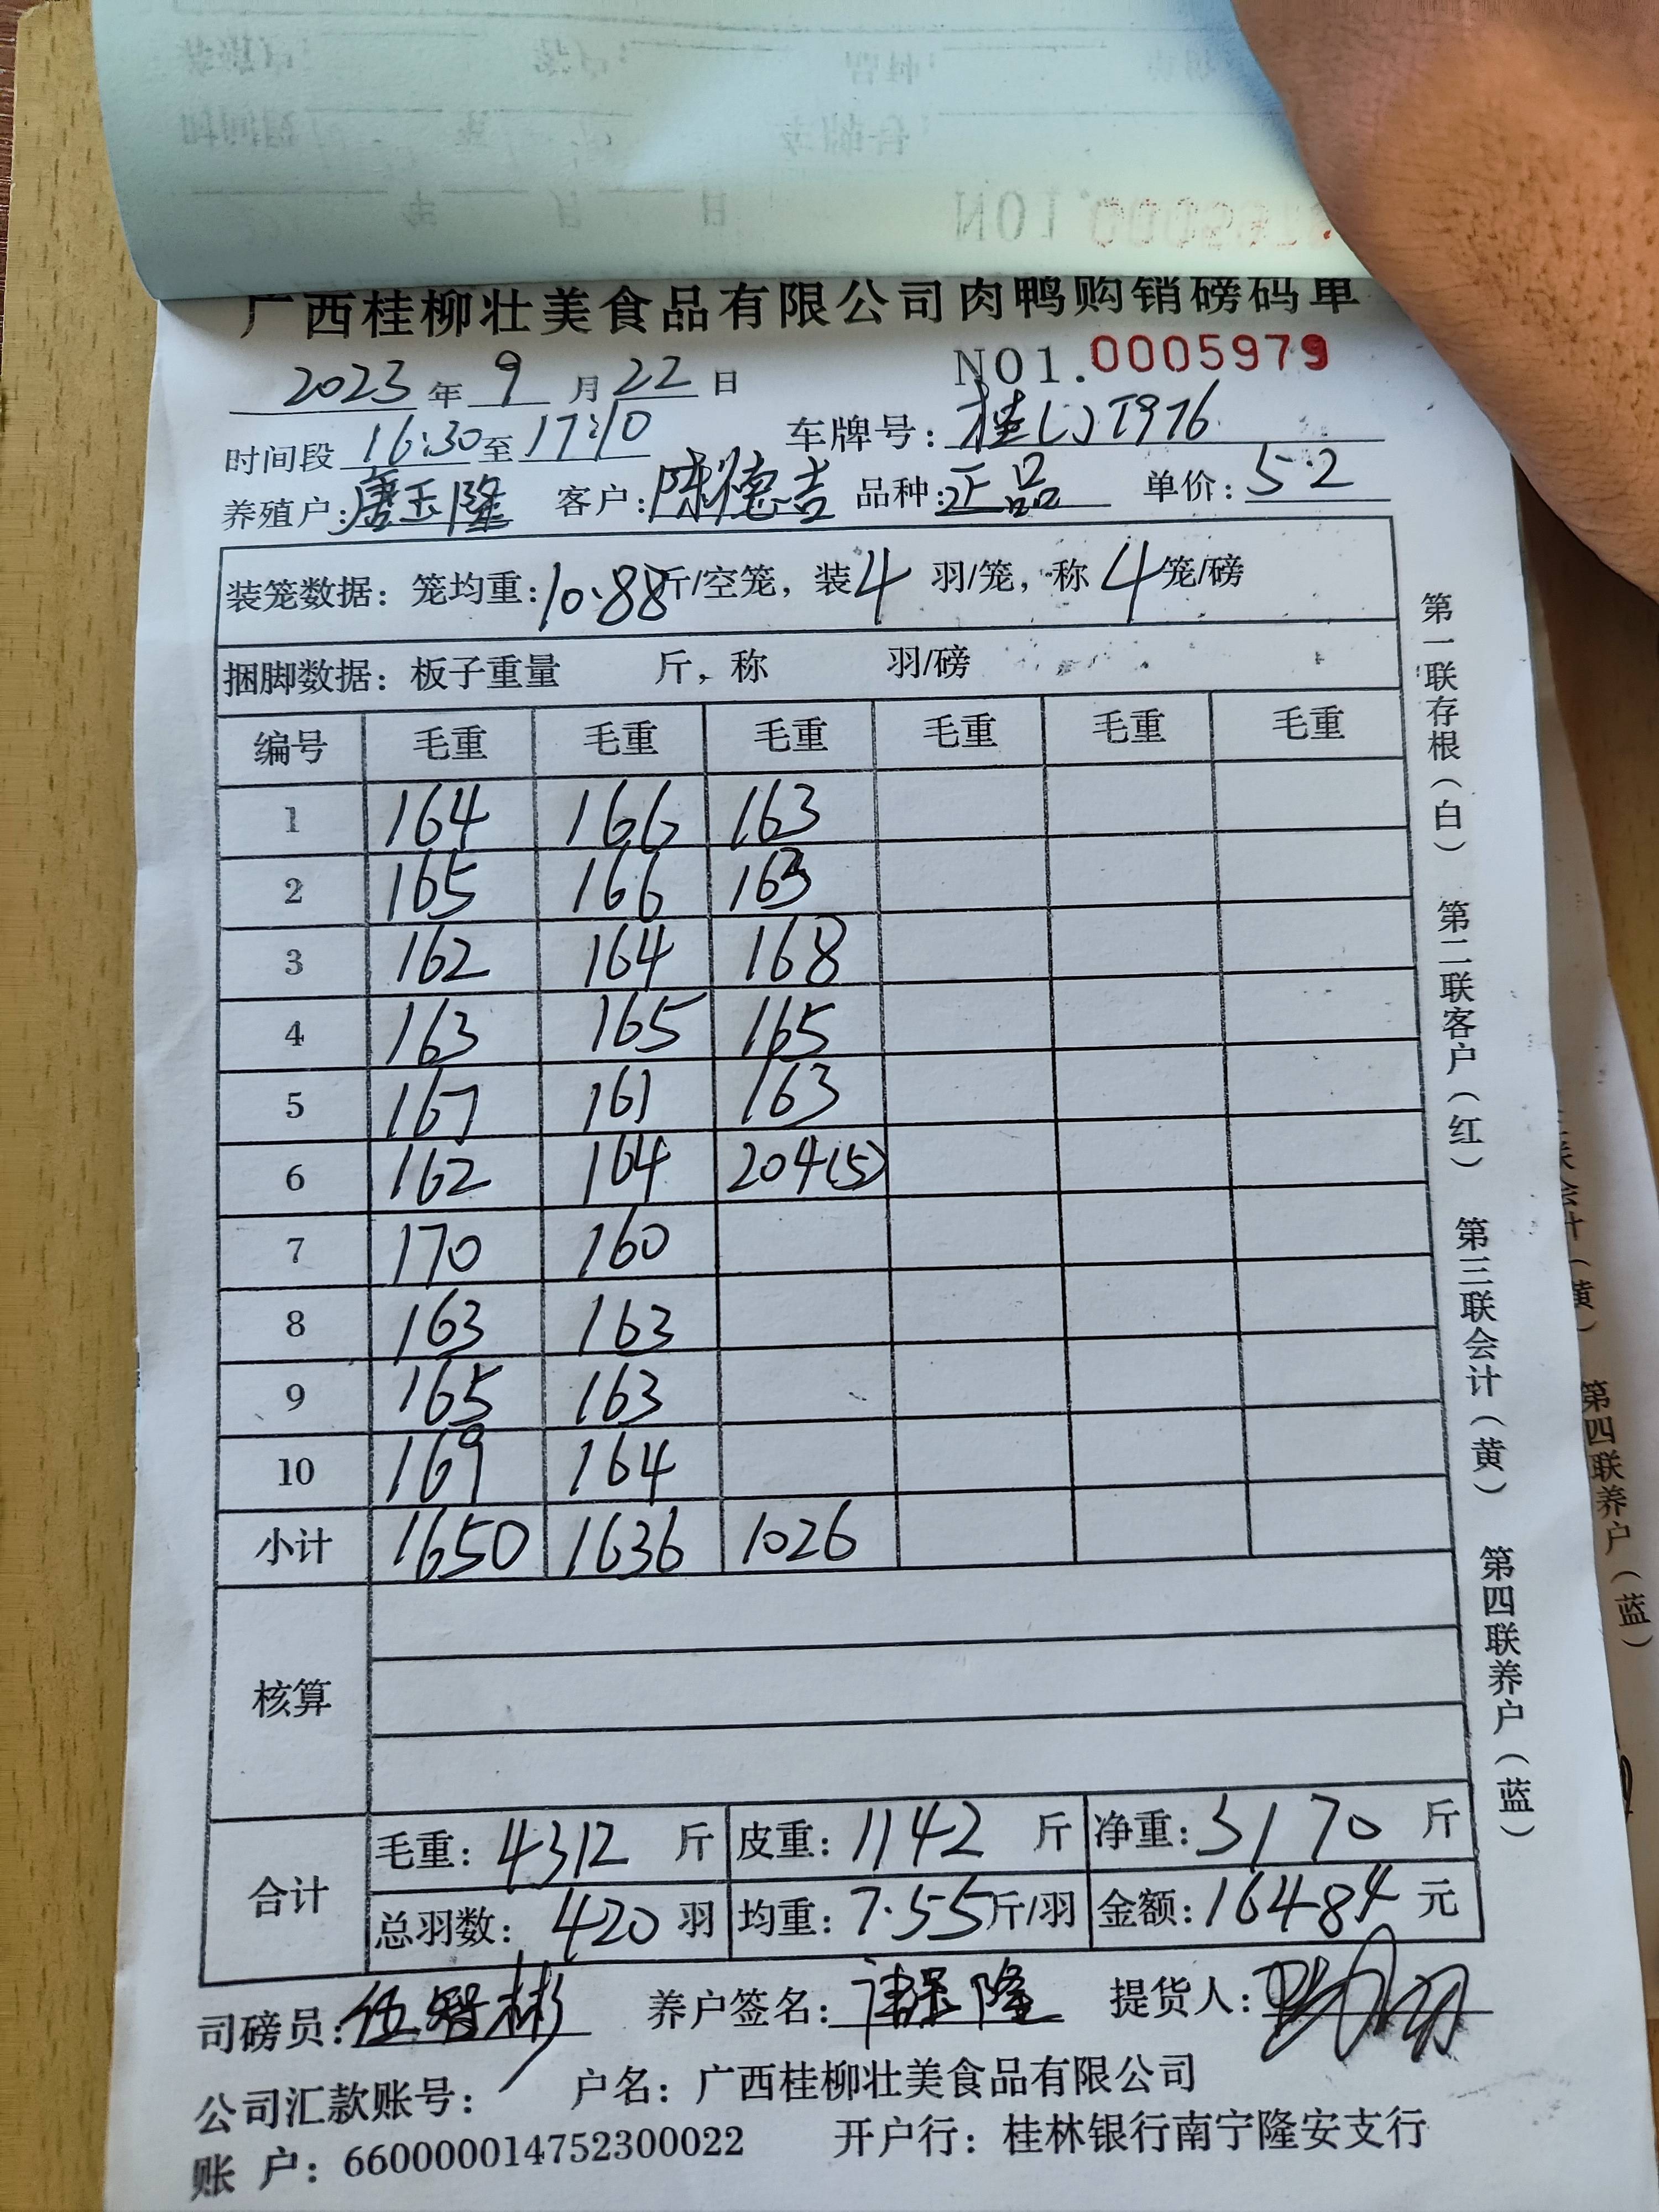 广西桂柳壮美食品有限公司肉鸭购销磅码单
2023年9月22日 NO1.0005979
时间段16:30至17:10 车牌号:桂LJT976
养殖户:唐玉隆 客户:陈德吉 品种:正品 单价:5.2
装笼数据:笼均重:10.88斤/空笼,装4羽/笼,称4笼/磅
捆脚数据:板子重量 斤,称 羽/磅
编号 毛重 毛重 毛重 毛重 毛重 毛重
1 164 166 163
2 165 166 163
3 162 164 168
4 163 165 165
5 167 161 163
6 162 164 204(5)
7 170 160
8 163 163
9 165 163
10 169 164
小计 1650 1636 1026
核算
合计 毛重:4312斤 皮重:1142斤 净重:3170斤
总羽数:420羽 均重:7.55斤/羽 金额:16484元
司磅员:伍智彬 养户签名: 隆 提货人:
公司汇款账号: 户名:广西桂柳壮美食品有限公司
账 户:660000014752300022 开户行:桂林银行南宁隆安支行
第一联存根(白) 第二联客户(红) 第三联会计(黄) 第四联养户(蓝)
第四联养户(蓝)